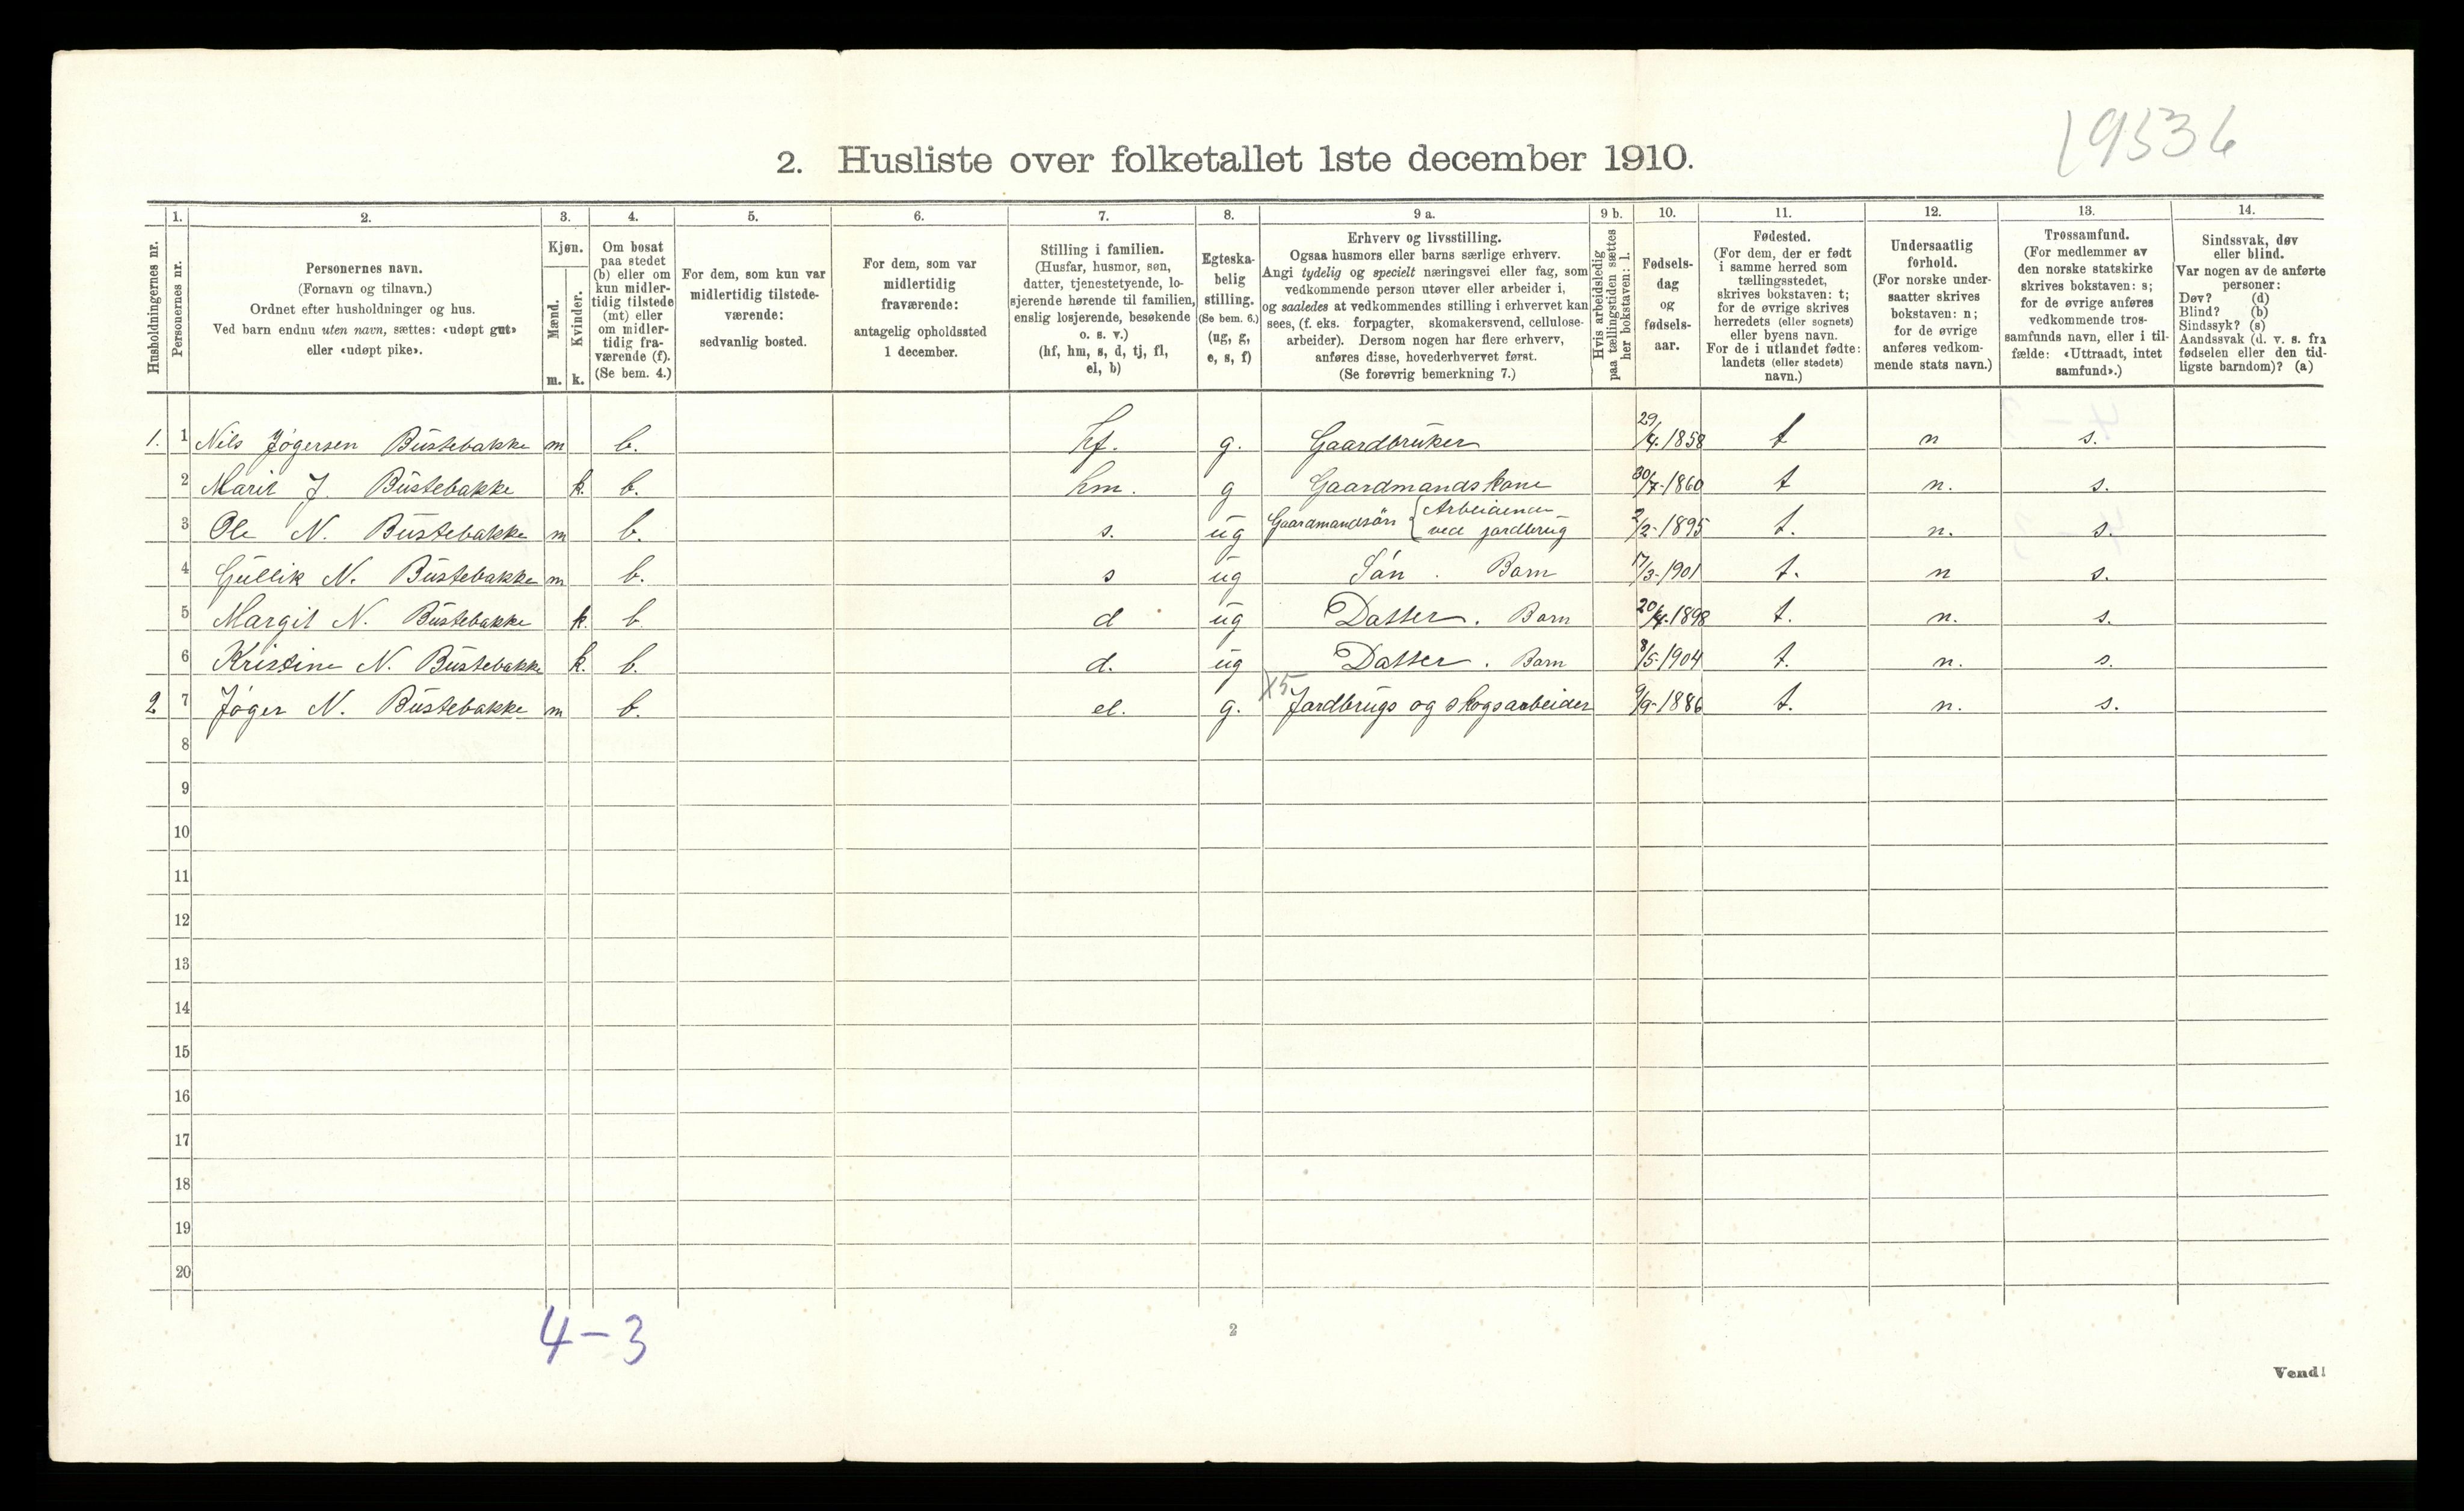 19536
2. Husliste over folketallet 1ste december 1910.
Husholdningernes nr.
1.
Personernes nr.
2.
Personernes navn.
(Fornavn og tilnavn.)
Ordnet efter husholdninger og hus.
Ved barn endnu uten navn, sættes: «udøpt gut»
eller «udøpt pike».
3.
Kjøn.
Mænd.
Kvinder.
m. k.
4.
Om bosat
paa stedet
(b) eller om
kun midler-
tidig tilstede
(mt) eller
om midler-
tidig fra-
værende (f).
(Se bem. 4.)
5.
For dem, som kun var
midlertidig tilstede-
værende:
sedvanlig bosted.
6.
For dem, som var
midlertidig
fraværende:
antagelig opholdssted
1 december.
7.
Stilling i familien.
(Husfar, husmor, søn,
datter, tjenestetyende, lo-
sjerende hørende til familien,
enslig losjerende, besøkende
o. s. v.)
(hf, hm, s, d, tj, fl,
el, b)
8.
Egteska-
belig
stilling.
(Se bem. 6.)
(ug, g,
e, s, f)
9 a.
Erhverv og livsstilling.
Ogsaa husmors eller barns særlige erhverv.
Angi tydelig og specielt næringsvei eller fag, som
vedkommende person utøver eller arbeider i,
og saaledes at vedkommendes stilling i erhvervet kan
sees, (f. eks. forpagter, skomakersvend, cellulose-
arbeider). Dersom nogen har flere erhverv,
anføres disse, hovederhvervet først.
(Se forøvrig bemerkning 7.)
9 b.
Hvis arbeidsledig
paa tællingstiden sættes
her bokstaven: l.
10.
Fødsels-
dag
og
fødsels-
aar.
11.
Fødested.
(For dem, der er født
i samme herred som
tællingsstedet,
skrives bokstaven: t;
for de øvrige skrives
herredets (eller sognets)
eller byens navn.
For de i utlandet fødte:
landets (eller stedets)
navn.)
12.
Undersaatlig
forhold.
(For norske under-
saatter skrives
bokstaven: n;
for de øvrige
anføres vedkom-
mende stats navn.)
13.
Trossamfund.
(For medlemmer av
den norske statskirke
skrives bokstaven: s;
for de øvrige anføres
vedkommende tros-
samfunds navn, eller i til-
fælde: «Uttraadt, intet
samfund».)
14.
Sindssvak, døv
eller blind.
Var nogen av de anførte
personer:
Døv? (d)
Blind? (b)
Sindssyk? (s)
Aandssvak (d. v. s. fra
fødselen eller den tid-
ligste barndom)? (a)
1. 1 Nils Jøgersen Büstebakke m b. hf. g. Gaardbrüker 29/4.1858 t n s.
2 Marit J. Büstebakke k. b. hm. g Gaardmandskone 30/7-1860 t n. s.
3 Ole N. Büstebakke m b. s. üg Gaardmandsøn { Arbeidende ved jordbrug 2/2-1895 t. n. s.
4 Güllik N. Büstebakke m b. s üg Søn . Barn 17/3-1901 t. n s.
5 Margit N. Büstebakke k. b d üg Datter. Barn 20/4.1898 t. n. s.
6 Kristine N. Büstebakke k. b. d. üg Datter. Barn 8/5-1904 t. n. s.
2 7 Jøger N. Büstebakke m b. el. g. X5 Jordbrugs og skogsarbeider 9/9-1886 t. n. s.
8
9
10
11
12
13
14
15
16
17
18
19
20
4-3
2
Vend!